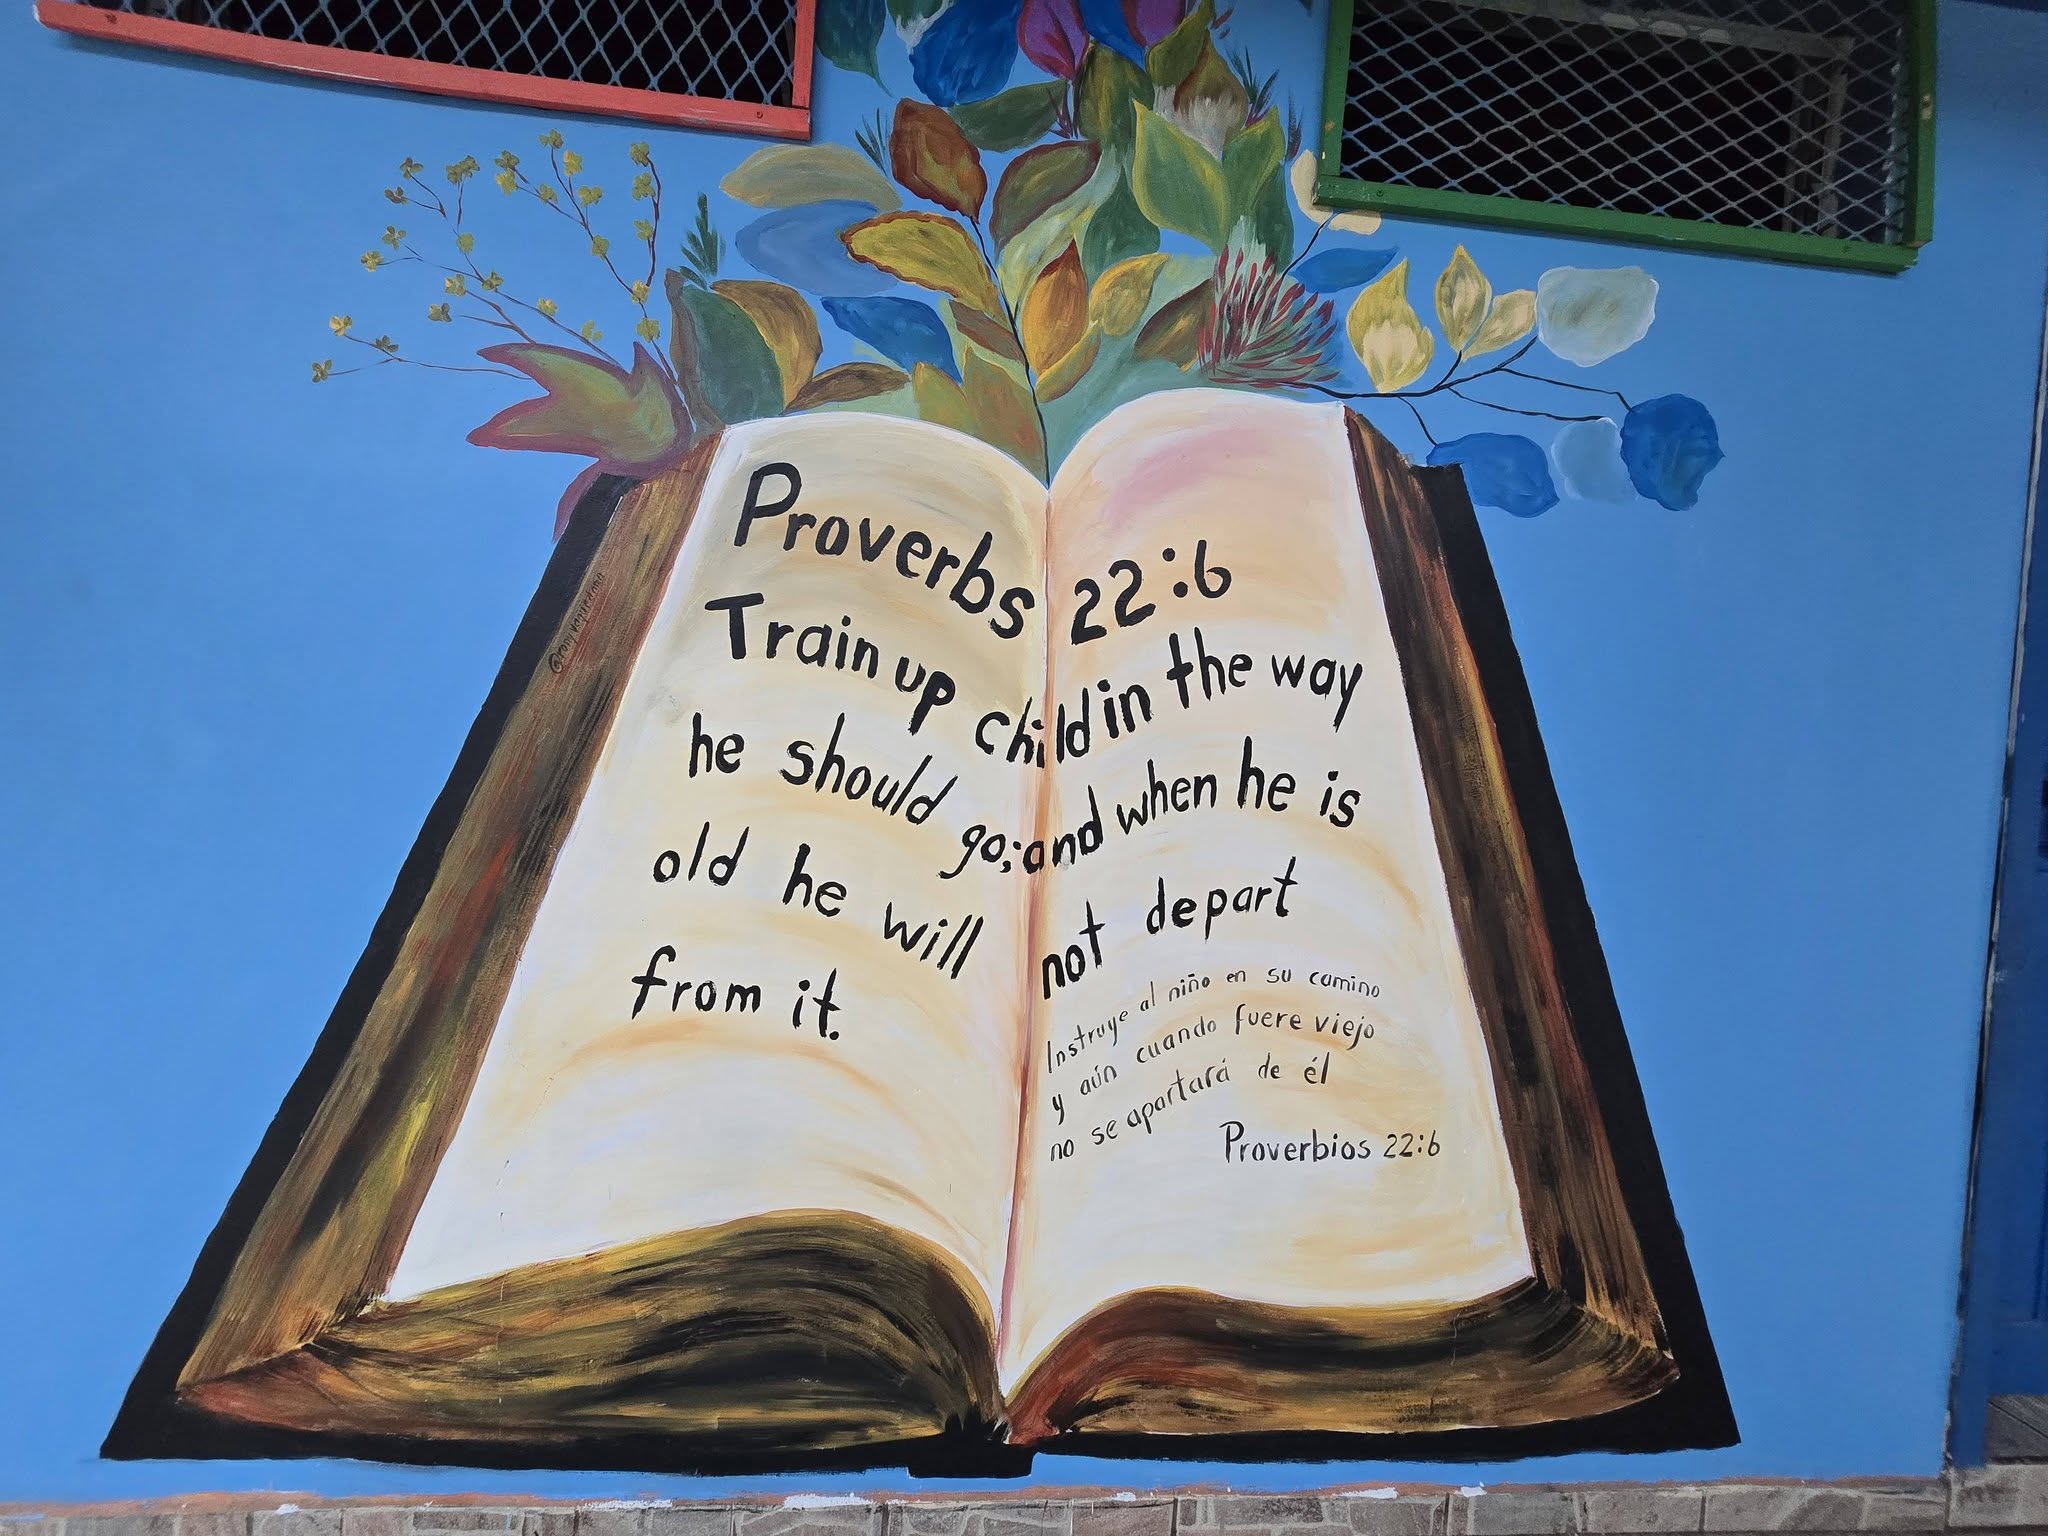 Proverbs 22:6
Train up child in the way
he should go; and when he is
old he will not depart
from it.
Instruye al niño en su camino
y aún cuando fuere viejo
no se apartará de él
Proverbios 22:6